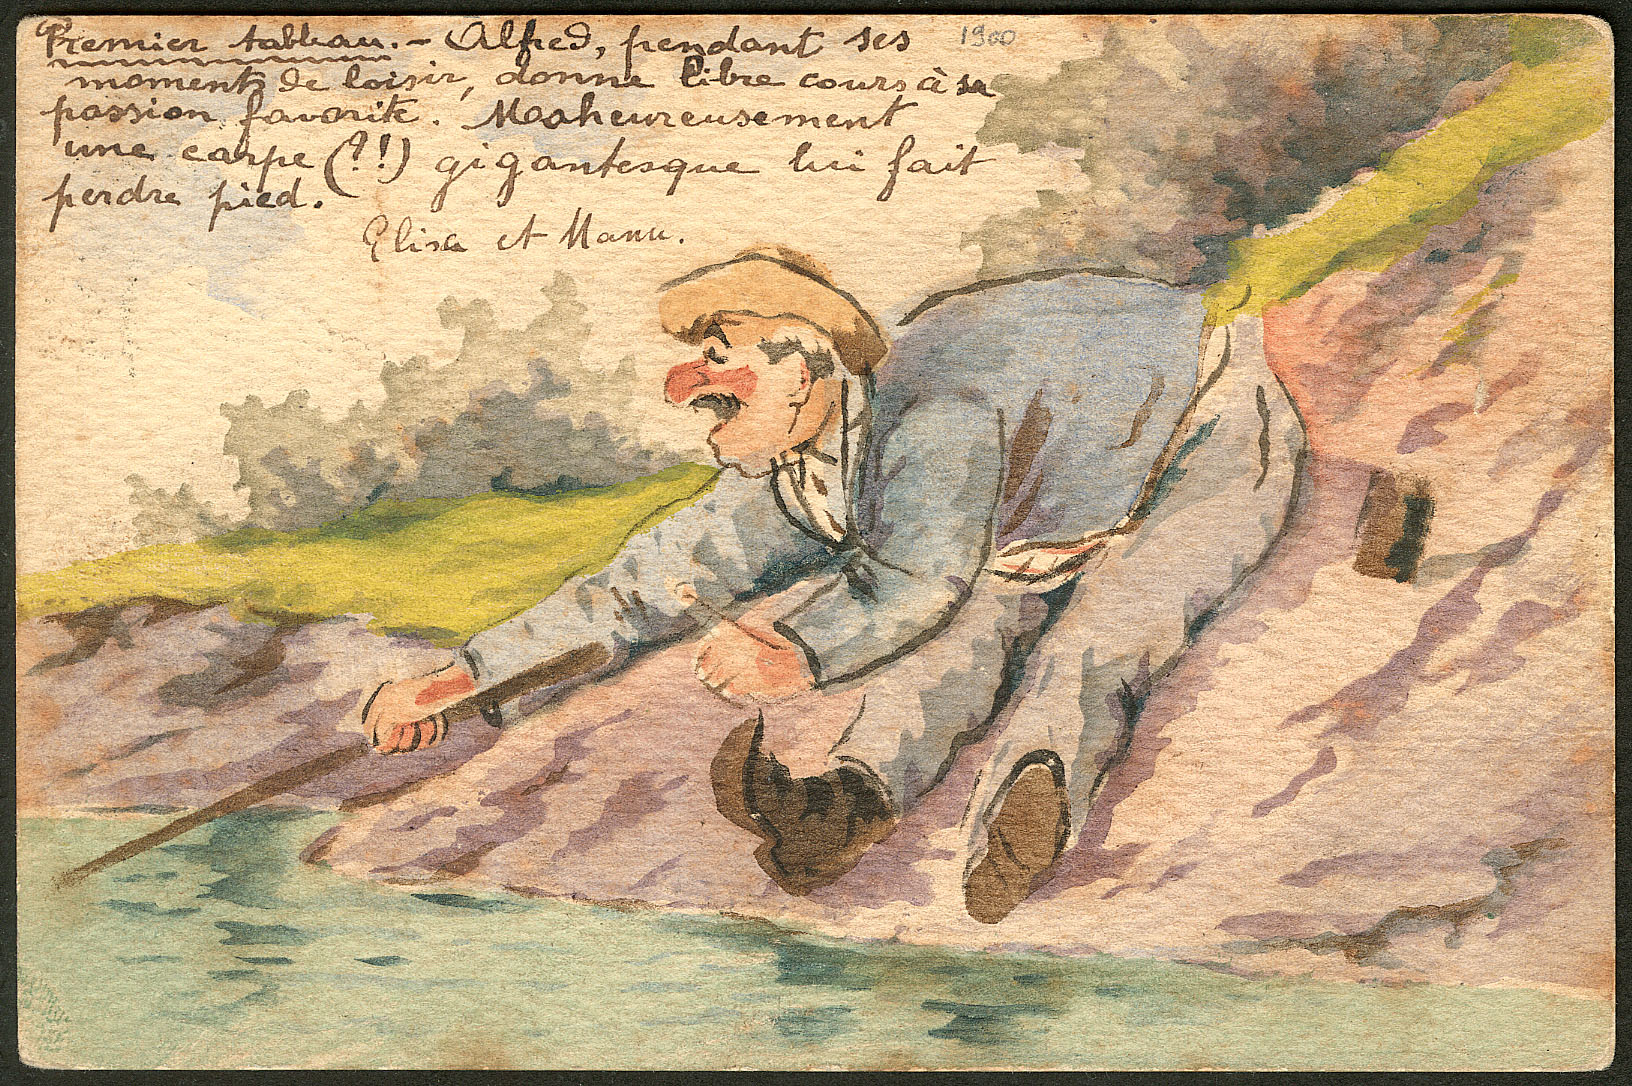 Premier tableau. - Alfred, pendant ses
1900
moments de loisir, donne libre cours à sa
passion favorite. Maheureusement
une carpe (?!) gigantesque lui fait
perdre pied.
Elisa et Manu.